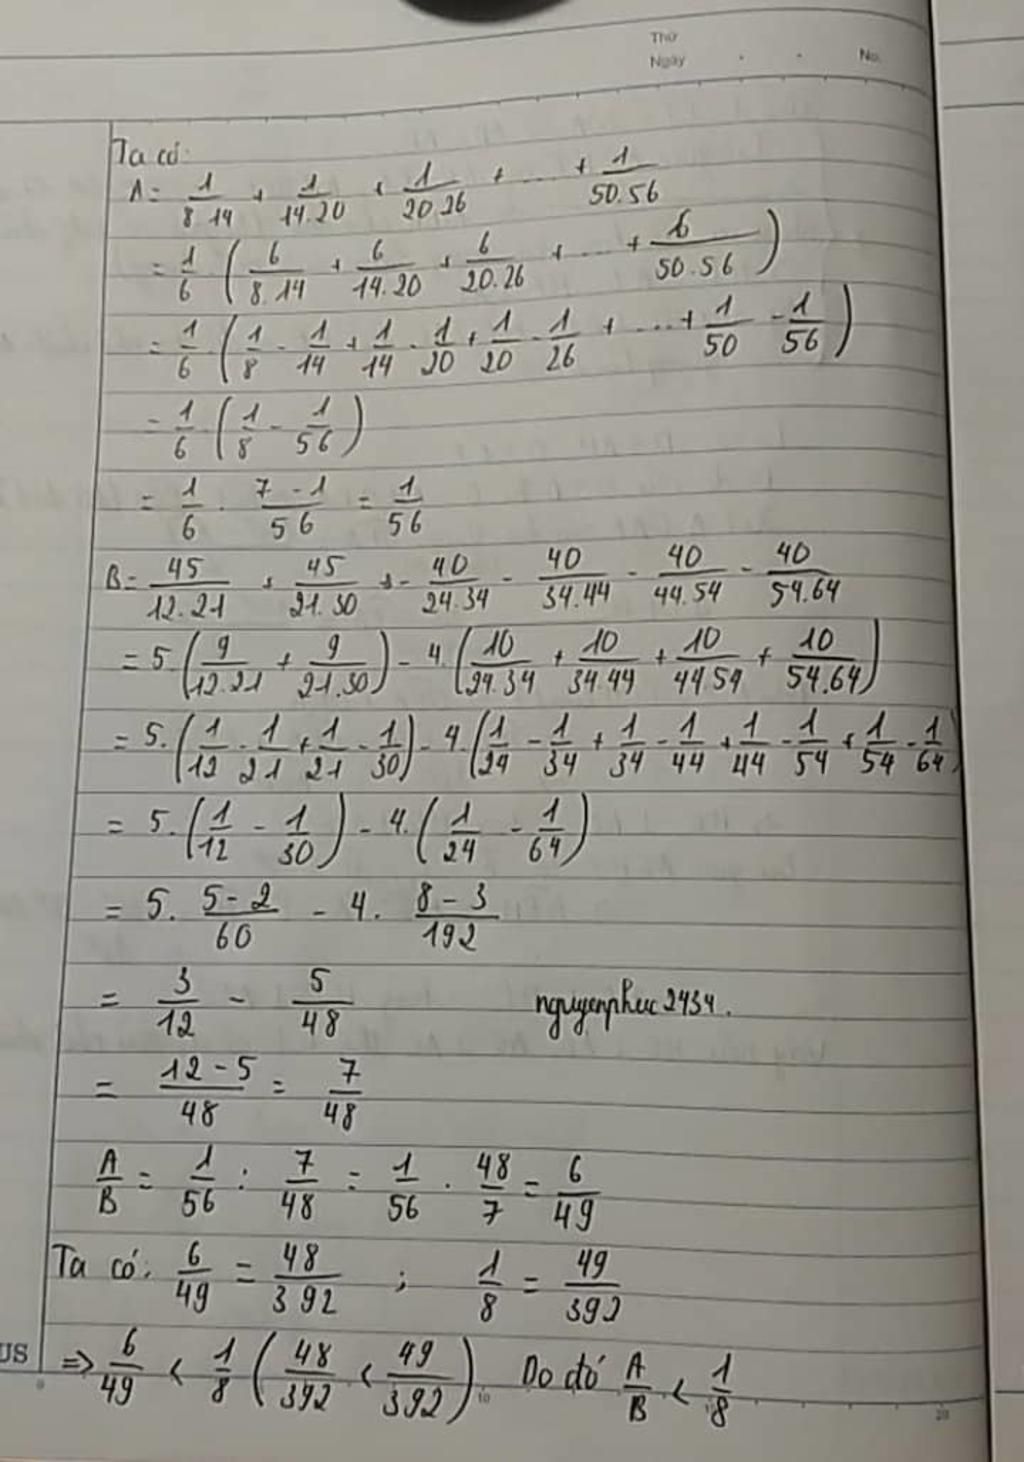 Thứ
Ngày . . No.
Ta có:
A = 1/8.14 + 1/14.20 + 1/20.26 + ... + 1/50.56
= 1/6 (6/8.14 + 6/14.20 + 6/20.26 + ... + 6/50.56)
= 1/6 . (1/8 - 1/14 + 1/14 - 1/20 + 1/20 - 1/26 + ... + 1/50 - 1/56)
= 1/6 . (1/8 - 1/56)
= 1/6 . 7-1/56 = 1/56
B = 45/12.21 + 45/21.30 + - 40/24.34 - 40/34.44 - 40/44.54 - 40/54.64
= 5.(9/12.21 + 9/21.30) - 4.(10/24.34 + 10/34.44 + 10/44.54 + 10/54.64)
= 5.(1/12 - 1/21 + 1/21 - 1/30) - 4.(1/24 - 1/34 + 1/34 - 1/44 + 1/44 - 1/54 + 1/54 - 1/64)
= 5.(1/12 - 1/30) - 4.(1/24 - 1/64)
= 5. 5-2/60 - 4. 8-3/192
= 3/12 - 5/48 nguyenphuc2434.
= 12-5/48 = 7/48
A/B = 1/56 : 7/48 = 1/56 . 48/7 = 6/49
Ta có: 6/49 = 48/392 ; 1/8 = 49/392
US => 6/49 < 1/8 (48/392 < 49/392) Do đó A/B < 1/8
0 10 20